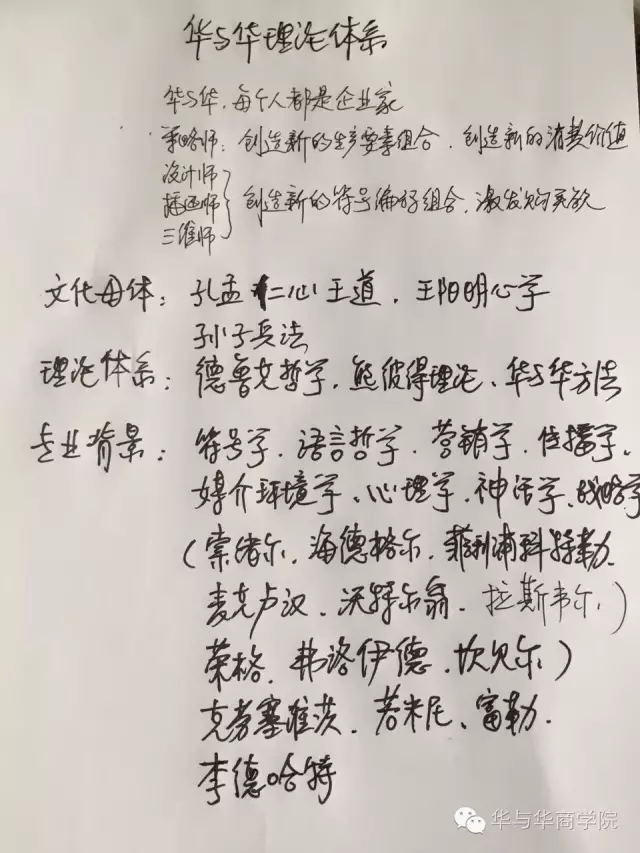 华与华理论体系
华与华,每个人都是企业家
策略师:创造新的生产要素组合,创造新的消费价值
设计师
插画师 } 创造新的符号编码组合,激发购买欲
三维师
文化母体:孔孟 仁心王道,王阳明心学
孙子兵法
理论体系:德鲁克哲学,熊彼得理论、华与华方法
专业背景:符号学,语言哲学,营销学,传播学、
媒介环境学、心理学,神话学、战略学
(索绪尔,海德格尔,菲利浦科特勒、
麦克卢汉、沃特尔翁,拉斯韦尔)
荣格,弗洛伊德,坎贝尔)
克劳塞维茨,若米尼、富勒.
李德哈特
华与华商学院